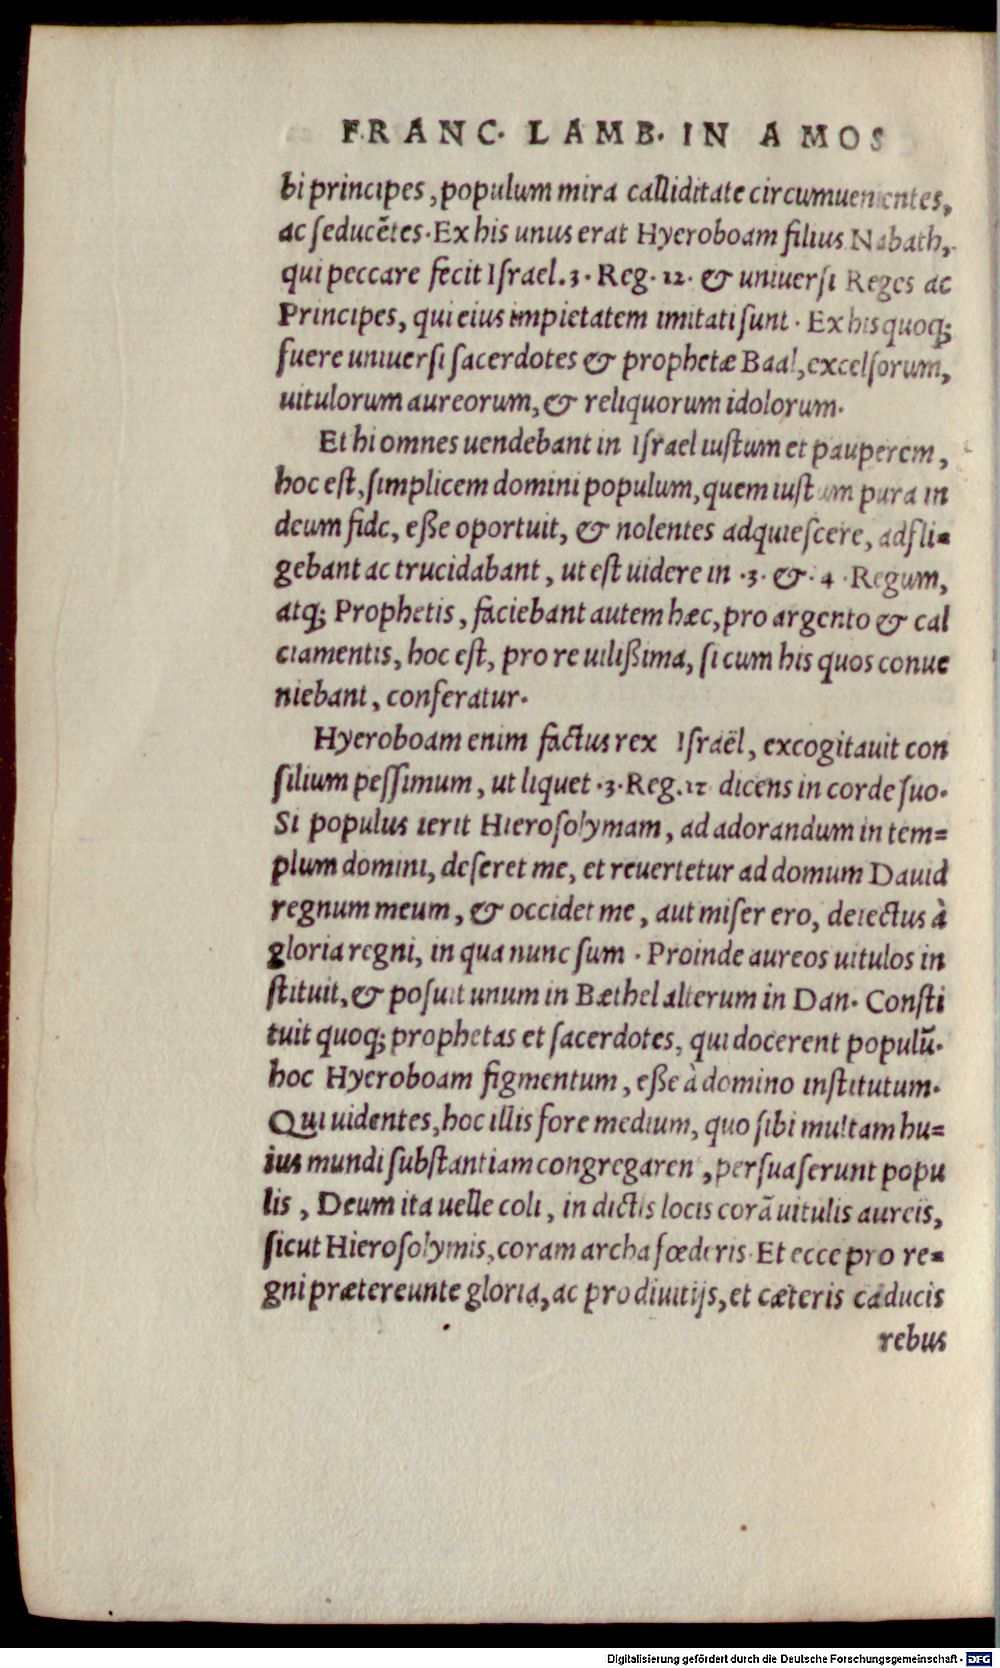 FRANC. LAMB. IN AMOS
bi principes, populum mira calliditate circumuenientes,
ac seducẽtes. Ex his unus erat Hyeroboam filius Nabath,
qui peccare fecit Israel. 3. Reg. 12. & uniuersi Reges ac
Principes, qui eius impietatem imitati sunt. Ex his quoq;
fuere uniuersi sacerdotes & prophetæ Baal, excelsorum,
uitulorum aureorum, & reliquorum idolorum.
Et hi omnes uendebant in Israel iustum et pauperem,
hoc est, simplicem domini populum, quem iustum pura in
deum fide, eße oportuit, & nolentes adquiescere, adfli=
gebant ac trucidabant, ut est uidere in .3. &. 4. Regum,
atq; Prophetis, faciebant autem hæc, pro argento & cal
ciamentis, hoc est, pro re uilißima, si cum his quos conue
niebant, conferatur.
Hyeroboam enim factus rex Israël, excogitauit con
silium pessimum, ut liquet .3. Reg. 12 dicens in corde suo.
Si populus ierit Hierosolymam, ad adorandum in tem=
plum domini, deseret me, et reuertetur ad domum Dauid
regnum meum, & occidet me, aut miser ero, deiectus à
gloria regni, in qua nunc sum. Proinde aureos uitulos in
stituit, & posuit unum in Bæthel alterum in Dan. Consti
tuit quoq; prophetas et sacerdotes, qui docerent populũ.
hoc Hyeroboam figmentum, eße à domino institutum.
Qui uidentes, hoc illis fore medium, quo sibi multam hu=
ius mundi substantiam congregaren, persuaserunt popu
lis, Deum ita uelle coli, in dictis locis corã uitulis aureis,
sicut Hierosolymis, coram archa fœderis. Et ecce pro re=
gni prætereunte gloria, ac pro diuitijs, et cæteris caducis
rebus
Digitalisierung gefördert durch die Deutsche Forschungsgemeinschaft - DFG